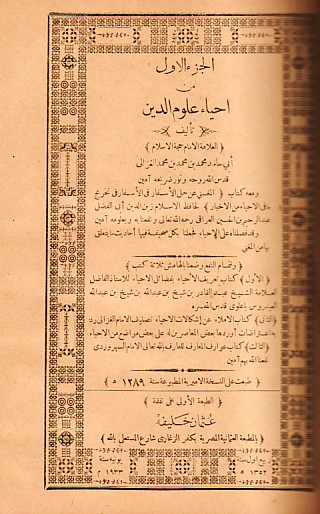 الجزء الاول
من
احياء علوم الدين
تأليف
﴿ العلامة الامام حجة الاسلام ﴾
أبي حامد محمد بن محمد بن محمد الغزالي
قدس الله روحه ونور ضريحه آمين
ومعه كتاب ﴿ المغني عن حمل الأسفار في الأسفار في تخريج
ما في الاحياء من الاخبار ﴾ لحافظ الاسلام زين الدين أبى الفضل
عبد الرحيم بن الحسين العراقى رحمه الله تعالى ونفعنا به وبعلومه آمين
وقد فصلناه على الاحياء فجعلنا بكل صحيفة فيها أحاديث ما يتعلق
بها من المغني
﴿ ولتمام النفع وضعنا بالهامش ثلاثة كتب ﴾
﴿ الأول ﴾ كتاب تعريف الأحياء بفضائل الاحياء للاستاذ الفاضل
العلامة الشيخ عبد القادر بن شيخ بن عبد الله بن شيخ بن عبد الله
العيدروس باعلوى قدس الله سره
﴿ الثانى ﴾ كتاب الاملاء عن إشكالات الاحياء تصنيف الامام الغزالى رد
به اعتراضات أوردها بعض المعاصرين له على بعض مواضع من الاحياء
﴿ الثالث ﴾ كتاب عوارف المعارف للعارف بالله تعالى الامام السهروردي
نفعنا الله بهم آمين
﴿ طبعت على النسخة الاميرية المطبوعة سنة ١٢٨٩ ه ﴾
الطبعة الأولى على نفقة
عثمان خليفه
﴿ بالمطبعة العثمانية المصرية بكفر الزغارى شارع المستعلى بالله ﴾
ربيع اول سنة يونيه سنة
١٣٥٢ ه ١٩٣٣ م